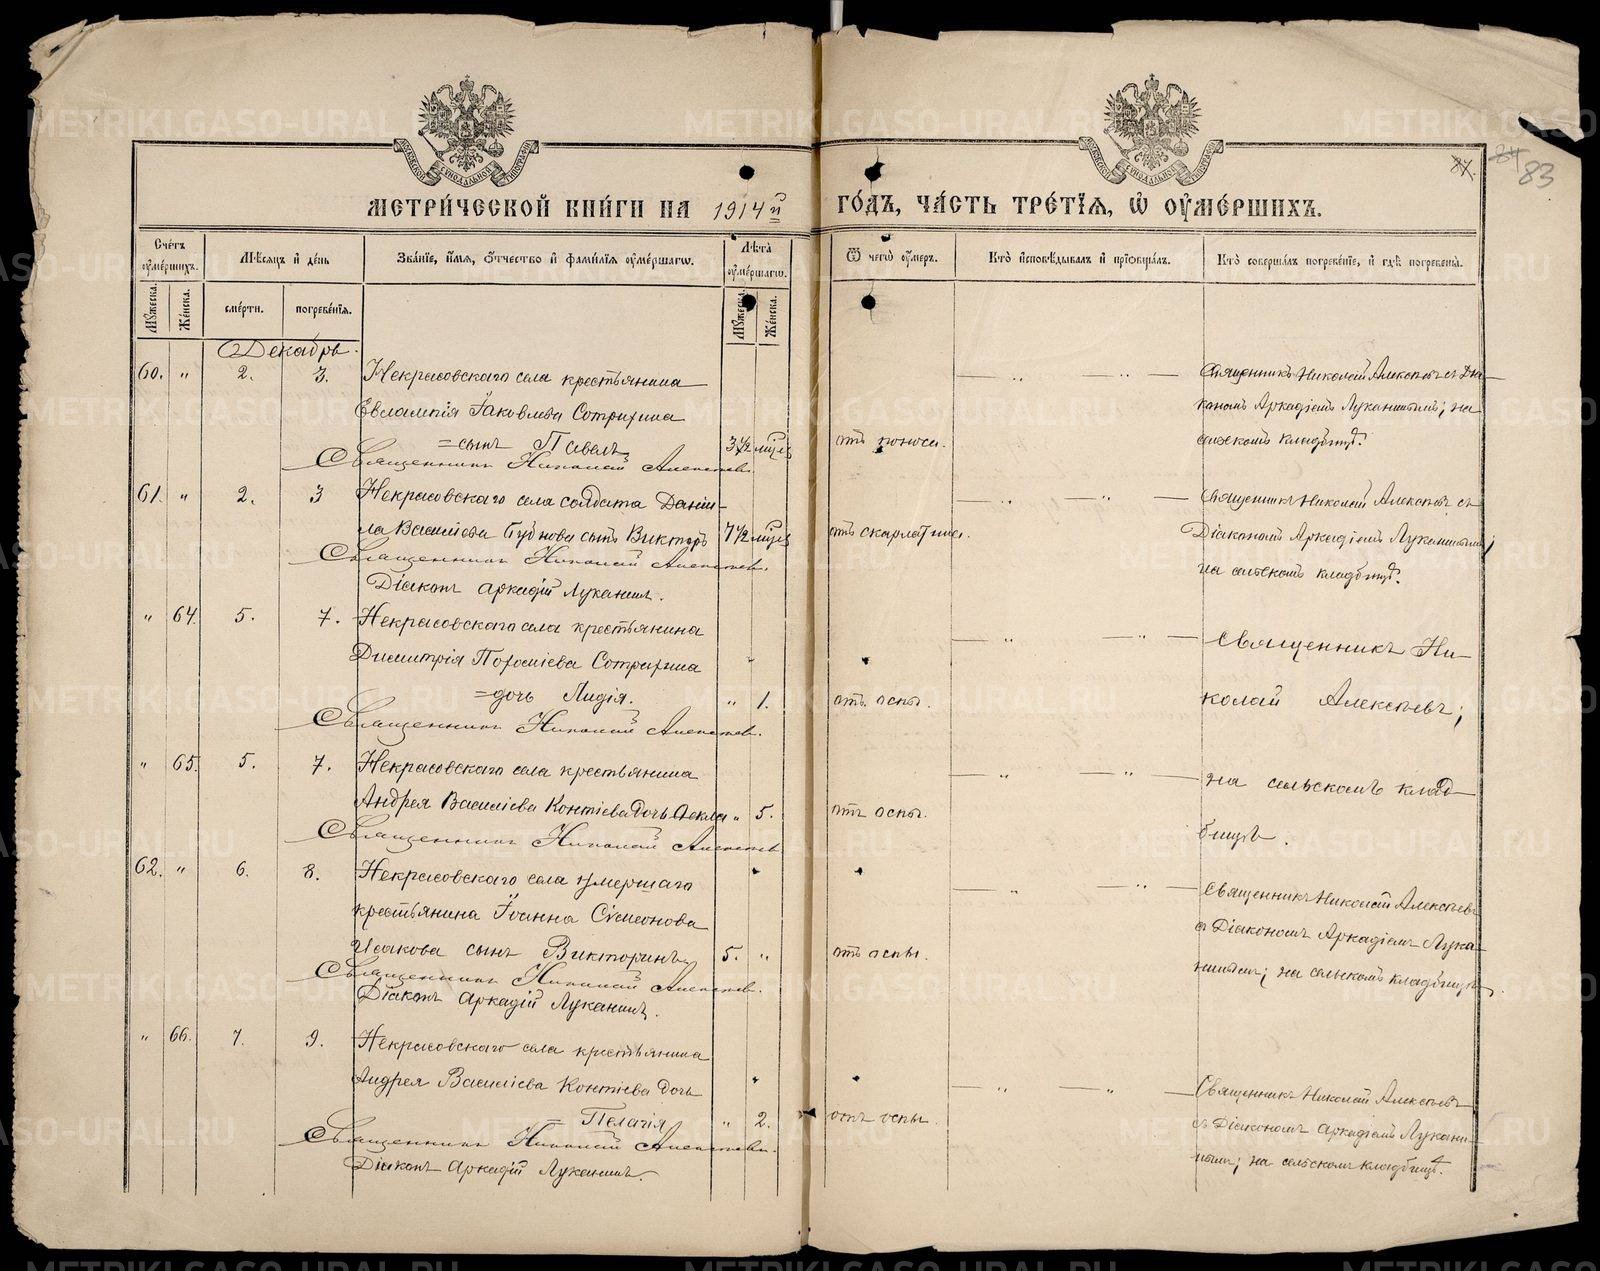 МЕТРИ́ЧЕСКОЙ КНИ́ГИ НА 1914 й ГО́ДЪ, ЧА́СТЬ ТРЕ́ТІЯ, Ѡ ОУМЕ́РШИХЪ.
87. 84 83
Сче́тъ оумершихъ.
Мужеска.
Же́нска.
Мѣсяцъ и день
сме́рти.
погребе́нїя.
Зва́нїе, и́мя, о́тчество и фами́лїя оуме́ршагѡ.
Лѣта̀ оуме́ршагѡ.
Мужеска.
Же́нска.
Ѿ чегѡ̀ оу́меръ.
Кто̀ исповѣ́дывалъ и прїобща́лъ.
Кто̀ соверша́лъ погребе́нїе, и гдѣ̀ погребены̀.
Декабрь.
60. " 2. 3. Некрасовскаго села крестьянина
Евлампія Іаковлева Сотрихина
=сынъ Павелъ 3 1/2 мѣс.
Священникъ Николай Алексѣевъ.
отъ поноса.
Священникъ Николай Алексѣевъ съ Діа-
кономъ Аркадіемъ Луканинымъ; на
сельскомъ кладбищѣ.
61. " 2. 3 Некрасовскаго села солдата Дании-
ла Василіева Бубнова сынъ Викторъ 7 1/2 мѣс.
Священникъ Николай Алексѣевъ.
Діаконъ Аркадій Луканинъ.
отъ скарлатины.
Священникъ Николай Алексѣевъ съ
Діакономъ Аркадіемъ Луканинымъ;
на сельскомъ кладбищѣ.
" 64. 5. 7. Некрасовскаго села крестьянина
Димитрія Сотрихина
=дочь Лидія. " 1.
Священникъ Николай Алексѣевъ.
отъ оспы.
Священникъ Ни-
колай Алексѣевъ;
" 65. 5. 7. Некрасовскаго села крестьянина
Андрея Василіева Контіева дочь Ѳекла " 5.
Священникъ Николай Алексѣевъ
отъ оспы.
на сельскомъ клад-
бищѣ.
62. " 6. 8. Некрасовскаго села умершаго
крестьянина Іоанна Сѵмеонова
Исакова сынъ Викторинъ 5. "
Священникъ Николай Алексѣевъ.
Діаконъ Аркадій Луканинъ.
отъ оспы.
Священникъ Николай Алексѣевъ
съ Діакономъ Аркадіемъ Лука-
нинымъ; на сельскомъ кладбищѣ.
" 66. 7. 9. Некрасовскаго села крестьянина
Андрея Василіева Контіева дочь
= Пелагія " 2.
Священникъ Николай Алексѣевъ.
Діаконъ Аркадій Луканинъ.
отъ оспы.
Священникъ Николай Алексѣевъ
съ Діакономъ Аркадіемъ Лукани-
нымъ; на сельскомъ кладбищѣ.
METRIKI.GASO-URAL.RU